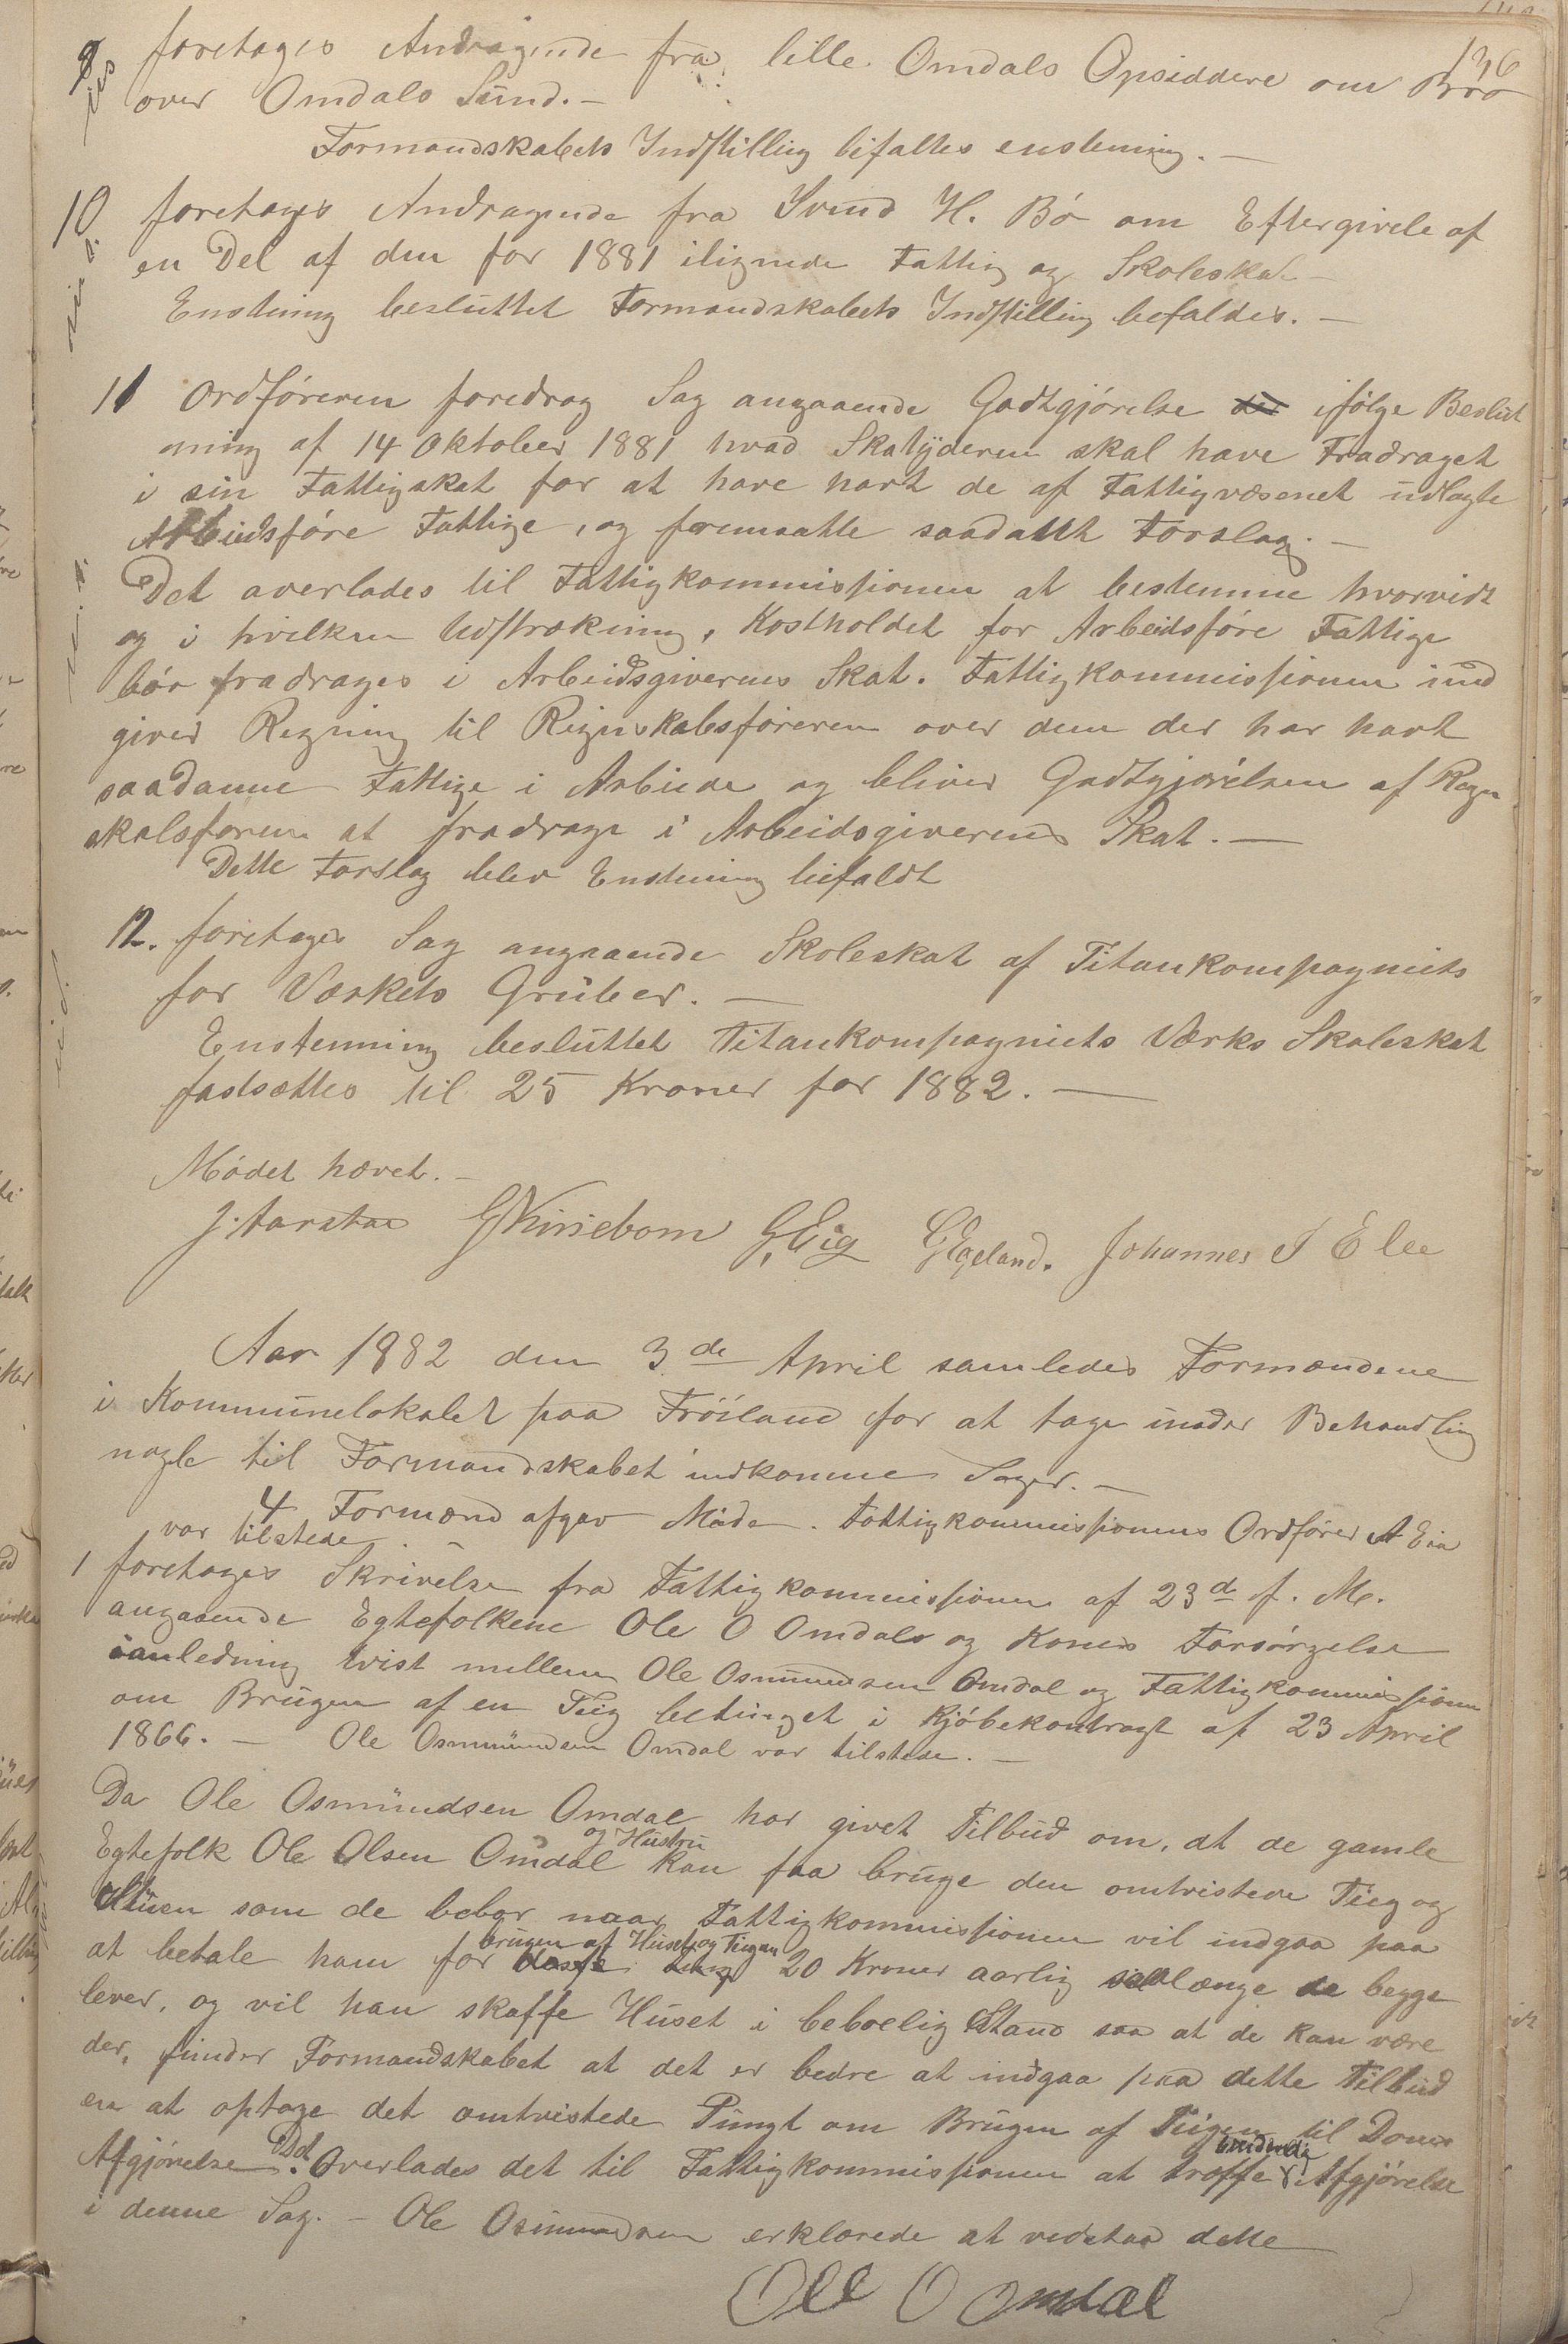 136
9 foretages Andragende fra lille Omdals Opsiddere om Bro
over Omdals Sund. —
Formandskabets Indstilling bifaltes enstemmig. —
10 foretages Andragende fra Svend H. Bö om Eftergivelse af
en Del af den for 1881 ilignede Fattig og Skoleskat —
Enstemmig besluttet Formandskabets Indstilling befaldes. —
11 Ordföreren foredrog Sag angaaende Godtgjörelse ifölge Beslut
ning af 14 Oktober 1881 hvad Skatyderen skal have Fradraget
i sin Fattigskat for at have havt de af Fattigvæsenet udlagte
Arbeidsföre Fattige, og fremsatte saadant Forslag. —
Det overlades til Fattigkommissionen at bestemme hvorvidt
og i hvilken Udstrækning, Kostholdet for Arbeidsföre Fattige
bör fradrages i Arbeidsgiverens Skat. Fattigkommissionen ind
giver Regning til Regnskabsföreren over dem der har havt
saadanne Fattige i Arbeide og bliver Godtgjörelsen af Regn
skabsföreren at fradrage i Arbeidsgiverens Skat. —
Dette Forslag blev Enstemmig bifaldt
12. foretages Sag angaaende Skoleskat af Titankompagniets
for Værkets Grüber. —
Enstemmig besluttet Titankompagniets Værks Skoleskat
fastsættes til 25 Kroner for 1882. —
Mödet hævet. —
J. Aarstad G Kirsebom G. Eig G Egeland. Johannes S Elee
Aar 1882 den 3de April samledes Formændene
i Kommunelokalet paa Fröiland for at tage under Behandling
nogle til Formandskabet indkomne Sager. —
4 Formænd afgav Möde. Fattigkommissionens Ordförer A Eia
var tilstede
1 foretages Skrivelse fra Fattigkommissionen af 23d f. M.
angaaende Egtefolkene Ole O Omdals og Kones Forsörgelse
ianledning tvist mellem Ole Osmundsen Omdal og Fattigkommissionen
om Brugen af en Teig betinget i Kjöbekontragt af 23 April
1866. — Ole Osmundsen Omdal var tilstede. —
Da Ole Osmündsen Omdal har givet Tilbüd om, at de gamle
og Hüstrü
Egtefolk Ole Olsen Omdal kan faa brüge den omtvistede Tieg og
Stüen som de bebor naar Fattigkommissionen vil indgaa paa
brugen af Huset og Tiegen
at betale ham for 20 Kroner aarlig saalænge de begge
lever, og vil han skaffe Hüset i beboelig Stand saa at de kan være
der, finder Formandskabet at det er bedre at indgaa paa dette Tilbüd
en at optage det omtvistede Püngt om Brügen af Tiegen til Doms
Afgjörelse. Det Overlades det til Fattigkommissionen at træffe endelig Afgjörelse
i denne Sag. — Ole Osmundsen erklærede at vedstaa dette
Ole O Omdal